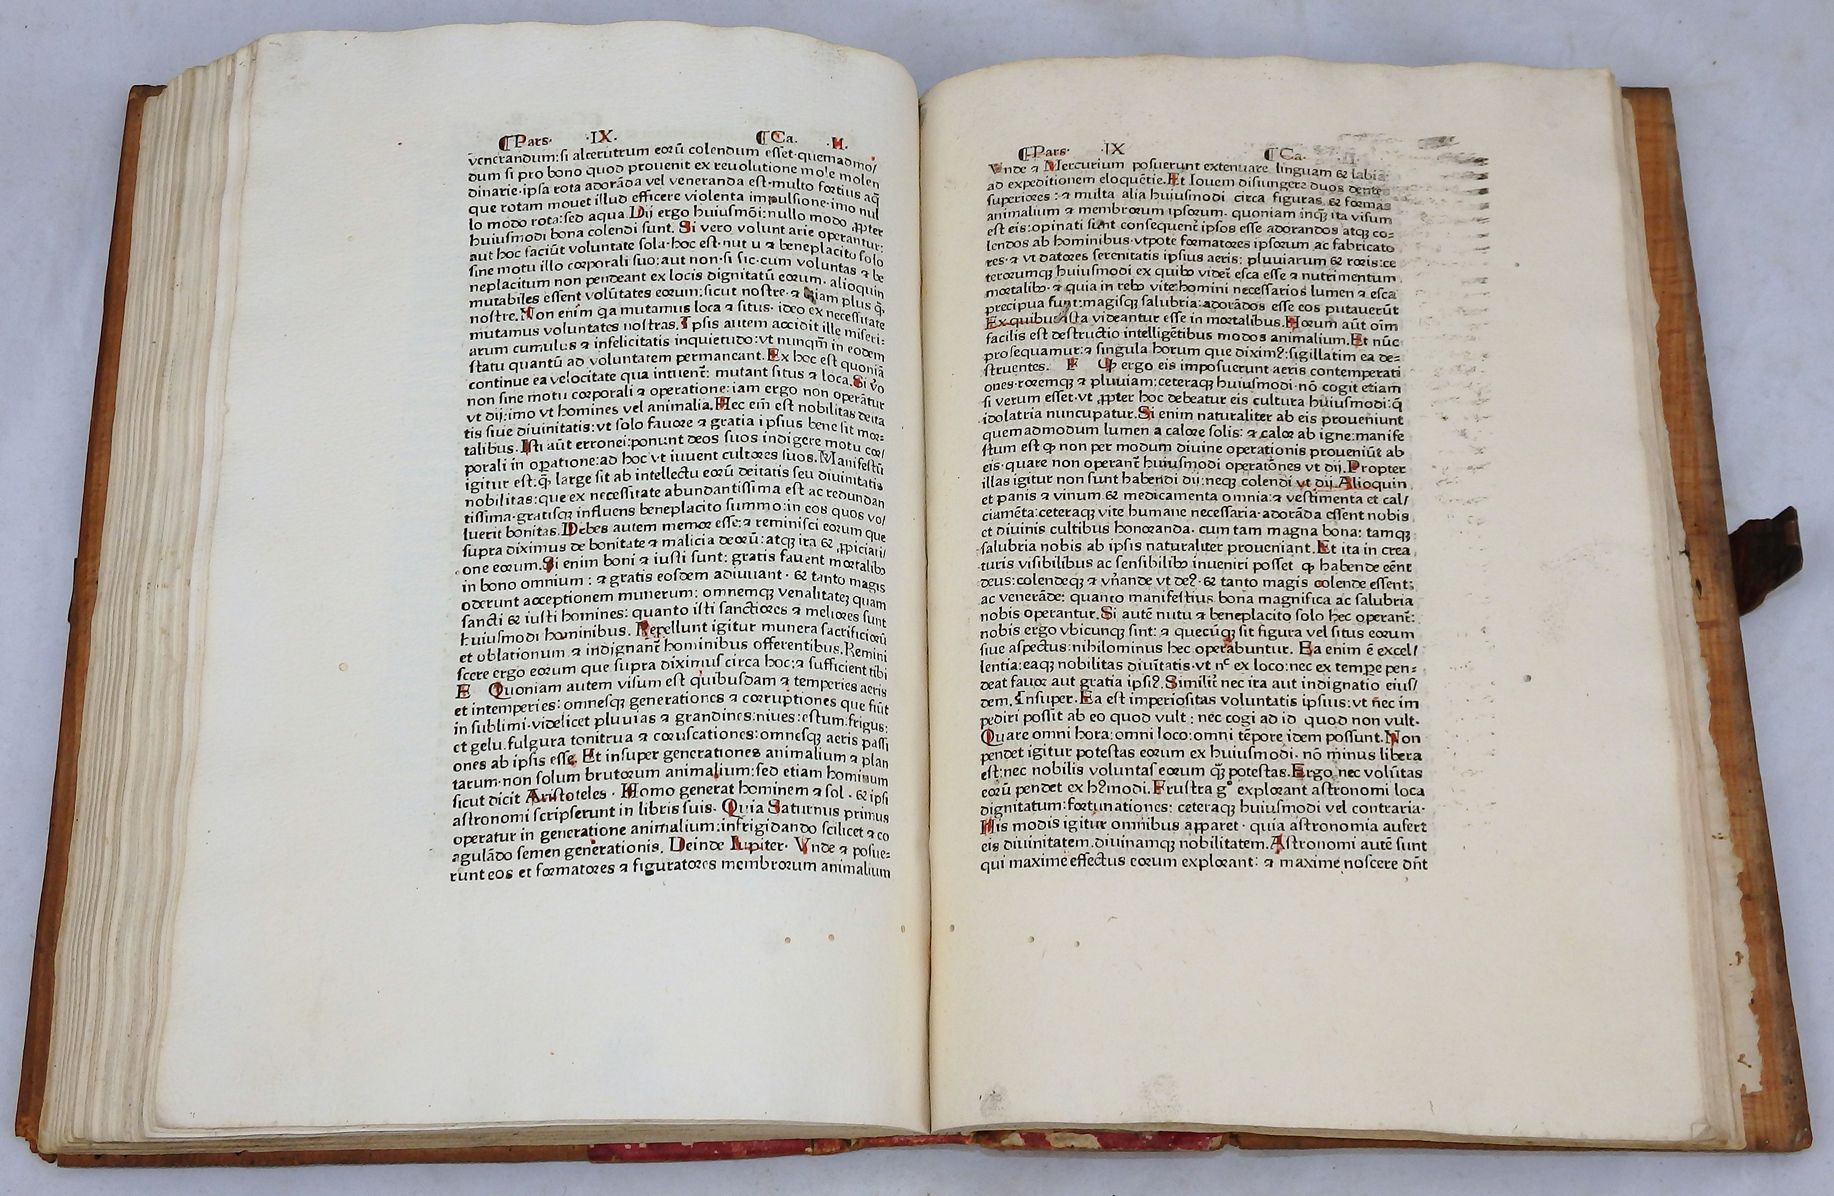 ¶Pars· ·IX· ¶Ca. ·II·
venerandum:si alterutrum eoꝝ colendum esset·quemadmo/
dum si pro bono quod prouenit ex reuolutione mole molen
dinarie·ipsa rota adorãda vel veneranda est·multo fortius aq̃
que rotam mouet illud efficere violenta impulsione·imo nul
lo modo rota:sed aqua.Dij ergo huiusmõi:nullo modo ꝓpter
huiusmodi bona colendi sunt. Si vero volunt arie operantur:
aut hoc faciũt voluntate sola·hoc est·nut u ⁊ beneplacito solo
sine motu illo corporali suo:aut non·si sic·cum voluntas ⁊ be
neplacitum non pendeant ex locis dignitatũ eorum· alioquin
mutabiles essent volũtates eorum:sicut nostre·⁊ etiam plus q̃
nostre.Non enim q̃a mutamus loca ⁊ situs· ideo ex necessitate
mutamus voluntates nostras.Ipsis autem accidit ille miseri:
arum cumulus ⁊ infelicitatis inquietudo:vt nunqm̃ in eodem
statu quantũ ad voluntatem permaneant.Ex hoc est quoniã
continue ea velocitate qua intuent̃: mutant situs ⁊ loca.Si vo
non sine motu corporali ⁊ operatione:iam ergo non operãtur
vt dij:imo vt homines vel animalia.Hec em̃ est nobilitas deita
tis siue diuinitatis:vt solo fauore ⁊ gratia ipsius bene sit mor=
talibus.Isti aũt erronei:ponunt deos suos indigere motu cor/
porali in oꝑatione:ad hoc vt iuuent cultores suos.Manifestũ
igitur est:q̃ large sit ab intellectu eorũ deitatis seu diuinitatis
nobilitas:que ex necessitate abundantissima est ac redundan
tissima·gratisqꝫ influens beneplacito summo:in eos quos vo/
luerit bonitas.Debes autem memor esse:⁊ reminisci eorum que
supra diximus de bonitate ⁊ malicia deorũ:atqꝫ ita & ꝓpiciati/
one eorum.Si enim boni ⁊ iusti sunt: gratis fauent mortalibꝫ
in bono omnium : ⁊ gratis eosdem adiuuant · & tanto magis
oderunt acceptionem munerum: omnemqꝫ venalitateꝫ quam
sancti & iusti homines: quanto isti sanctiores ⁊ meliores sunt
huiusmodi hominibus. Repellunt igitur munera sacrificiorũ
et oblationum ⁊ indignant̃ hominibus offerentibus.Remini
scere ergo eorum que supra diximus circa hoc:⁊ sufficient tibi
E Quoniam autem visum est quibusdam ⁊ temperies aeris
et intemperies: omnesqꝫ generationes ⁊ corruptiones que fiũt
in sublimi·videlicet pluuias ⁊ grandines:niues:estum:frigus:
et gelu.fulgura tonitrua ⁊ coruscationes:omnesqꝫ aeris passi
ones ab ipsis esse. Et insuper generationes animalium ⁊ plan
tarum·non solum brutorum animalium:sed etiam hominum
sicut dicit Aristoteles · Homo generat hominem ⁊ sol · & ipsi
astronomi scripserunt in libris suis· Quia Saturnus primus
operatur in generatione animalium:infrigidando scilicet ⁊ co
agulãdo semen generationis. Deinde Iupiter· Vnde ⁊ posue=
runt eos et formatores ⁊ figuratores membrorum animalium
¶Pars· IX ¶Ca·
Vnde ⁊ Mercurium posuerunt extenuare linguam & labia
ad expeditionem eloquẽtie.Et Iouem disiungere duos dentes
superiores : ⁊ multa alia huiusmodi circa figuras & formas
animalium ⁊ membrorum ipsorum· quoniam inqꝫ ita visum
est eis:opinati sunt consequent̃ ipsos esse adorandos atqꝫ co=
lendos ab hominibus·vtpote formatores ipsorum ac fabricato
res·⁊ vt datores serenitatis ipsius aeris: pluuiarum & roris:ce
terorumqꝫ huiusmodi ex quibꝫ videt̃ esca esse ⁊ nutrimentum
mortalibꝫ·⁊ quia in rebꝫ vite:homini necessarios lumen ⁊ esca
precipua sunt:magisqꝫ salubria:adorãdos esse eos putauerũt
Ex quibus ista videantur esse in mortalibus.Horum aũt oĩm
facilis est destructio intelligẽtibus modos animalium.Et nũc
prosequamur:⁊ singula horum que diximꝰ:sigillatim ea de=
struentes. F Qꝫ ergo eis imposuerunt aeris contemperati
ones·roremqꝫ ⁊ pluuiam:ceteraqꝫ huiusmodi·nõ cogit etiam
si verum esset·vt ꝓpter hoc debeatur eis cultura huiusmodi:q̃
idolatria nuncupatur.Si enim naturaliter ab eis proueniunt
quemadmodum lumen a calore solis: ⁊ calor ab igne:manife
stum est ꝙ non per modum diuine operationis proueniũt ab
eis·quare non operant̃ huiusmodi operatiões vt dij.Propter
illas igitur non sunt habendi dij:neqꝫ colendi vt dij.Alioquin
et panis ⁊ vinum.& medicamenta omnia:⁊ vestimenta et cal/
ciamẽta:ceteraqꝫ vite humane necessaria·adorãda essent nobis
et diuinis cultibus honoranda· cum tam magna bona: tamqꝫ
salubria nobis ab ipsis naturaliter proueniant.Et ita in crea
turis visibilibus ac sensibilibꝫ inueniri posset ꝙ habende eẽnt
deus:colendeqꝫ ⁊ vñande vt deꝰ· & tanto magis colende essent:
ac venerãde: quanto manifestius bona magnifica ac salubria
nobis operantur.Si autẽ nutu ⁊ beneplacito solo hec operant̃:
nobis ergo vbicunqꝫ sint: ⁊ quecũqꝫ sit figura vel situs eorum
siue aspectus:nihilominus hec operabuntur. Ea enim ẽ excel/
lentia:eaqꝫ nobilitas diuĩtatis·vt nᶜ ex loco:nec ex tempe pen=
deat fauor aut gratia ipsiꝰ.Similit̃ nec ira aut indignatio eius/
dem.Insuper.Ea est imperiositas voluntatis ipsius:vt nec im
pediri possit ab eo quod vult : nec cogi ad id quod non vult·
Quare omni hora:omni loco:omni tẽpore idem possunt.Non
pendet igitur potestas eorum ex huiusmodi· nõ minus libera
est:nec nobilis voluntas eorum q̃ꝫ potestas.Ergo nec volũtas
eorũ pendet ex hꝰmodi.Frustra gᵒ explorant astronomi loca
dignitatum:fortunationes: ceteraqꝫ huiusmodi vel contraria·
His modis igitur omnibus apparet · quia astronomia aufert
eis diuinitatem.diuinamqꝫ nobilitatem.Astronomi autẽ sunt
qui maxime effectus eorum explorant: ⁊ maxime noscere dñt